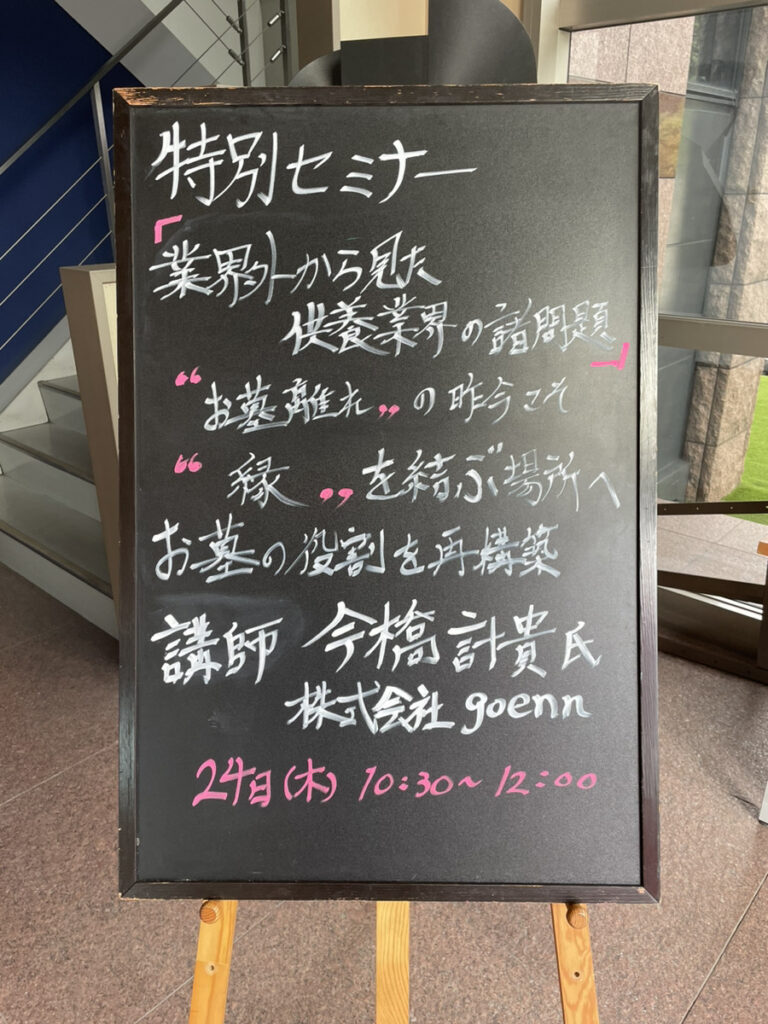 特別セミナー
「業界外から見た
供養業界の諸問題」
“お墓離れ”の昨今こそ
“縁”を結ぶ場所へ
お墓の役割を再構築
講師 今橋計貴氏
株式会社goenn
24日(木) 10:30~12:00